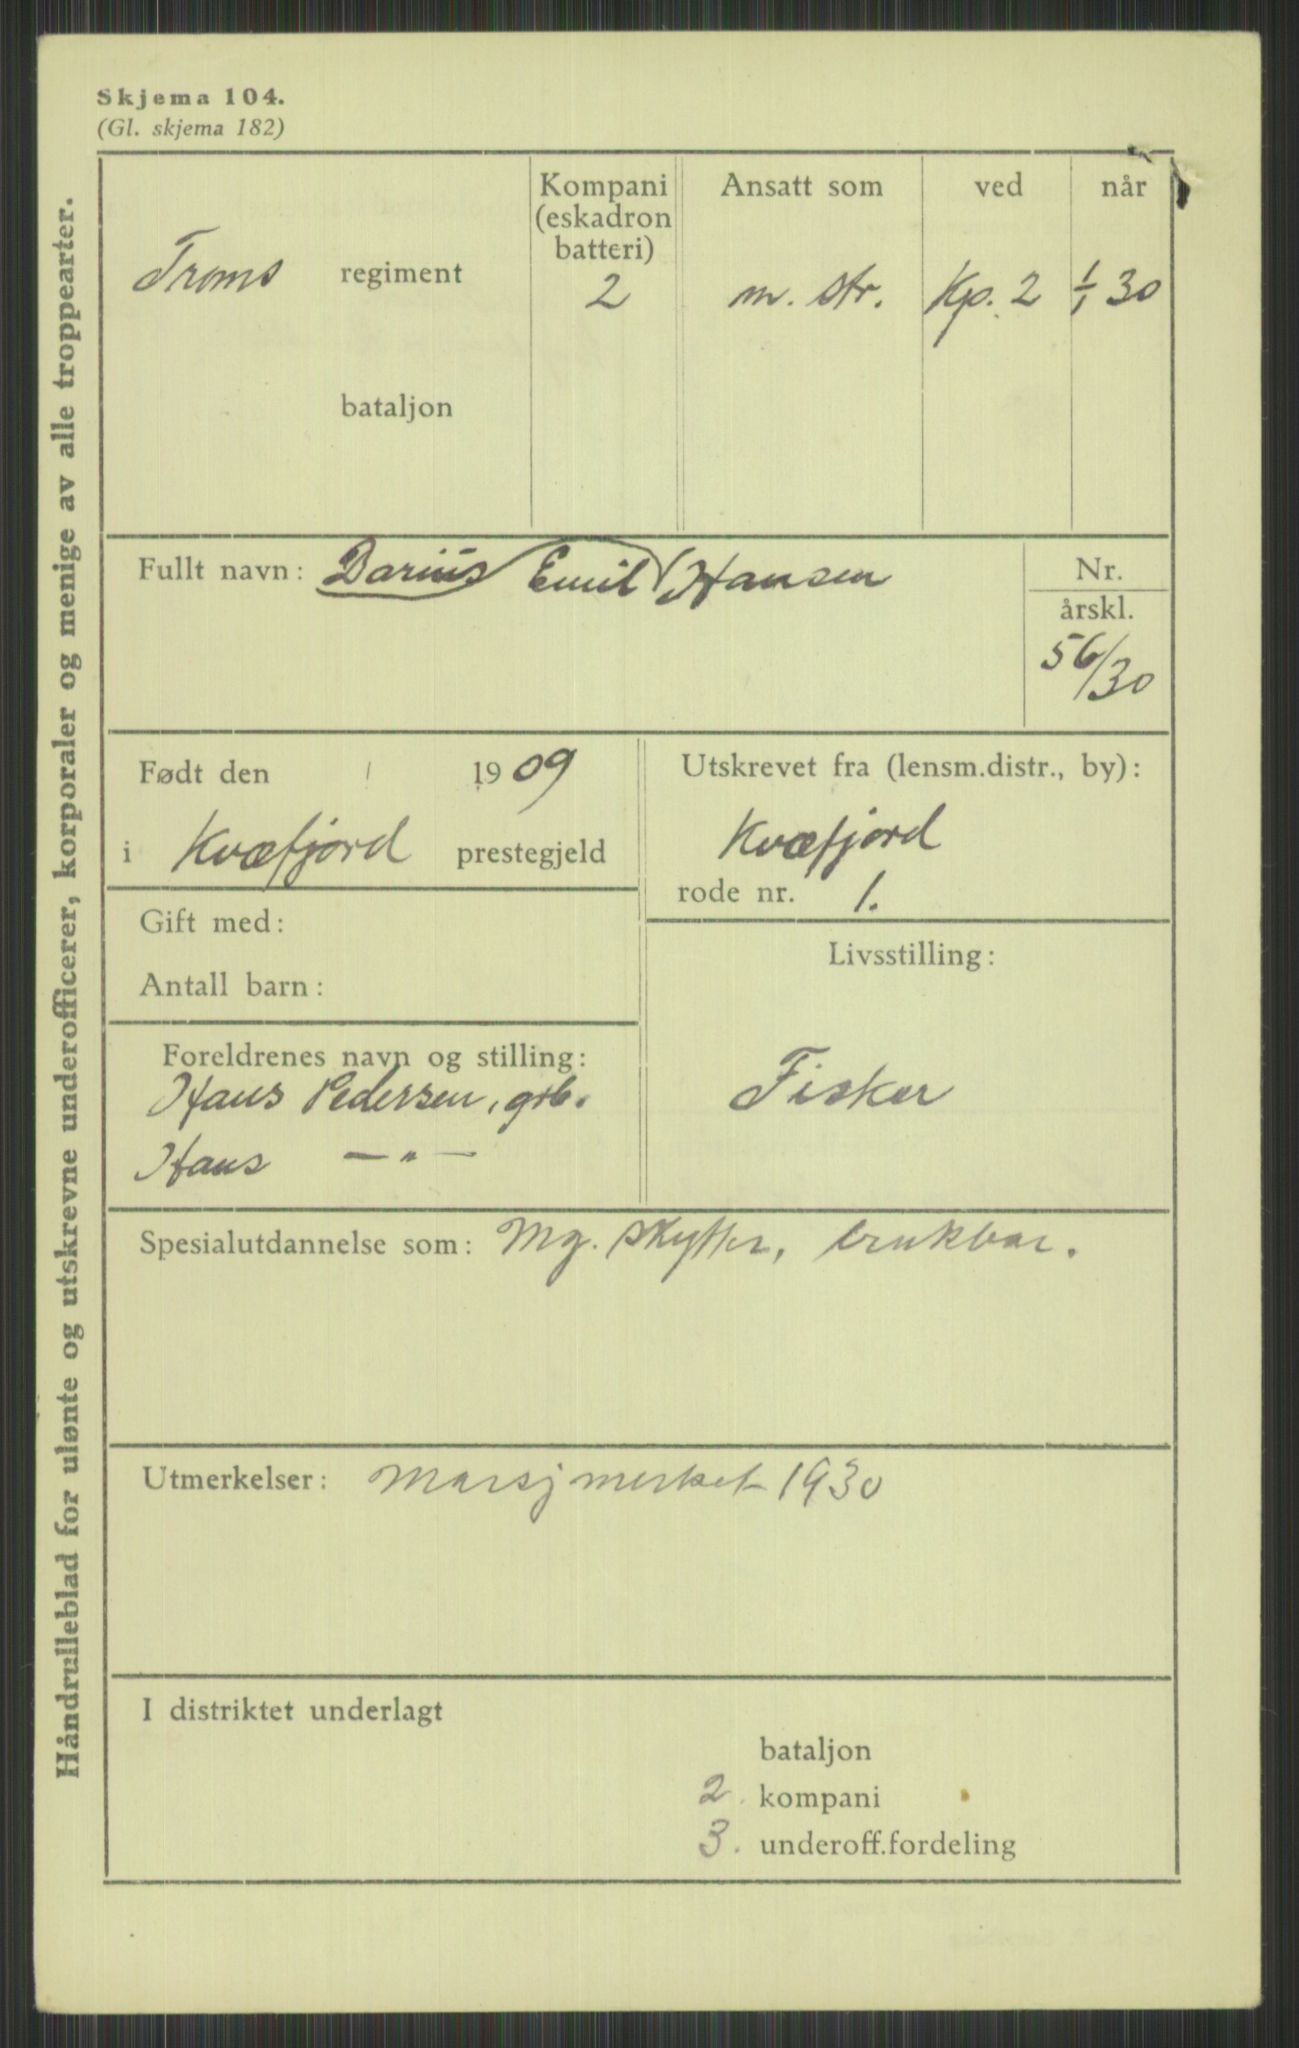 Skjema 104.
(Gl. skjema 182)
Håndrulleblad for ulønte og utskrevne underofficerer, korporaler og menige av alle troppearter.
Troms regiment
bataljon
Kompani
(eskadron
batteri)
2
Ansatt som
m. str.
ved
Kp. 2
når
1/1 30
Fullt navn: Darius Emil Hansen
Nr.
årskl.
56/30
Født den 1909
i Kvæfjord prestegjeld
Utskrevet fra (lensm.distr., by):
Kvæfjord
rode nr. 1.
Gift med:
Antall barn:
Livsstilling:
Fisker
Foreldrenes navn og stilling:
Hans Pedersen, grb.
Hans — " —
Spesialutdannelse som: Mg. skytter, brukbar.
Utmerkelser: Marsjmerket 1930
I distriktet underlagt
bataljon
2. kompani
3. underoff.fordeling